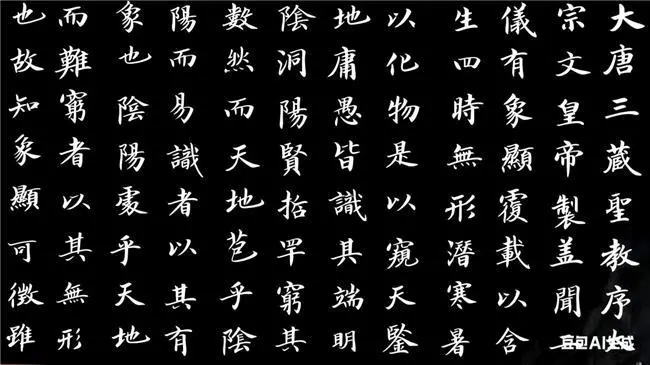 大唐三藏聖教序
宗文皇帝製盖聞
儀有象顯覆載以含
生四時無形潛寒暑
以化物是以窺天鑒
地庸愚皆識其端明
陰洞陽賢哲罕窮其
數然而天地苞乎陰
陽而易識者以其有
象也陰陽處乎天地
而難窮者以其無形
也故知象顯可徵雖
豆包AI生成